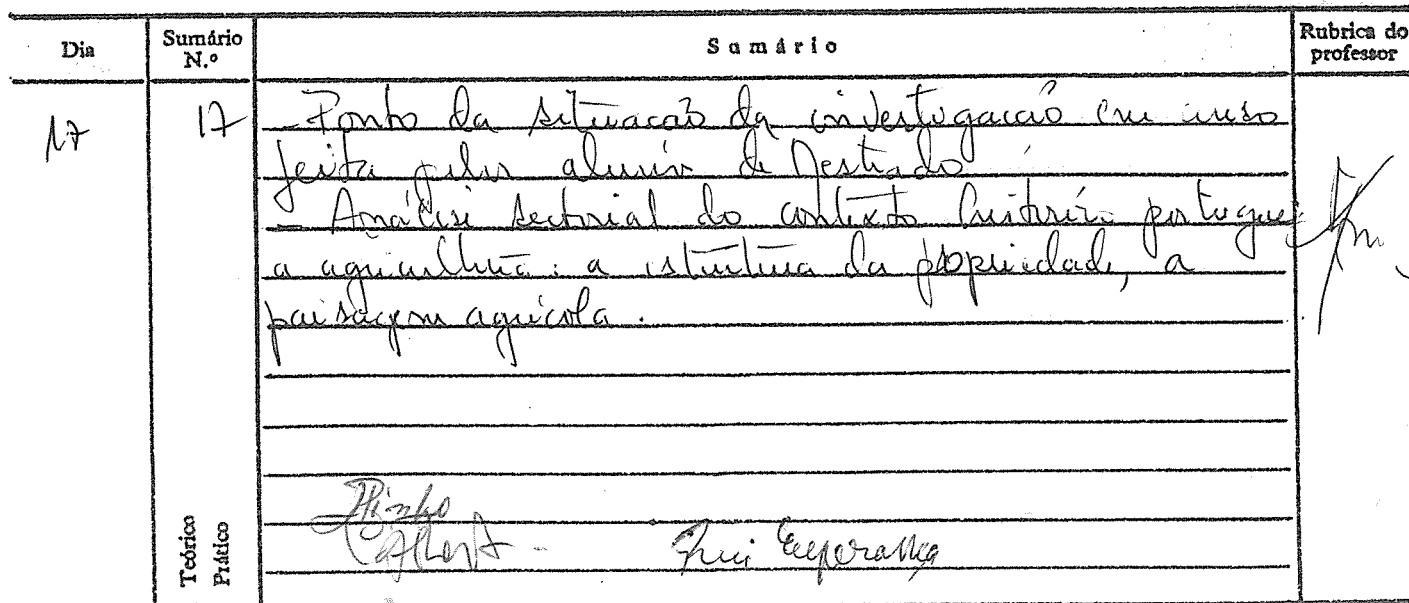 Dia
Sumário N.º
Sumário
Rubrica do professor
17
17
- Ponto da situação da investigação em curso
feita pelos alunos de Mestrado
- Análise sectorial do contexto histórico português
a agricultura: a estrutura da propriedade, a
paisagem agrícola.
Teórico
Prático
Pinho
Albert
Rui Esperança